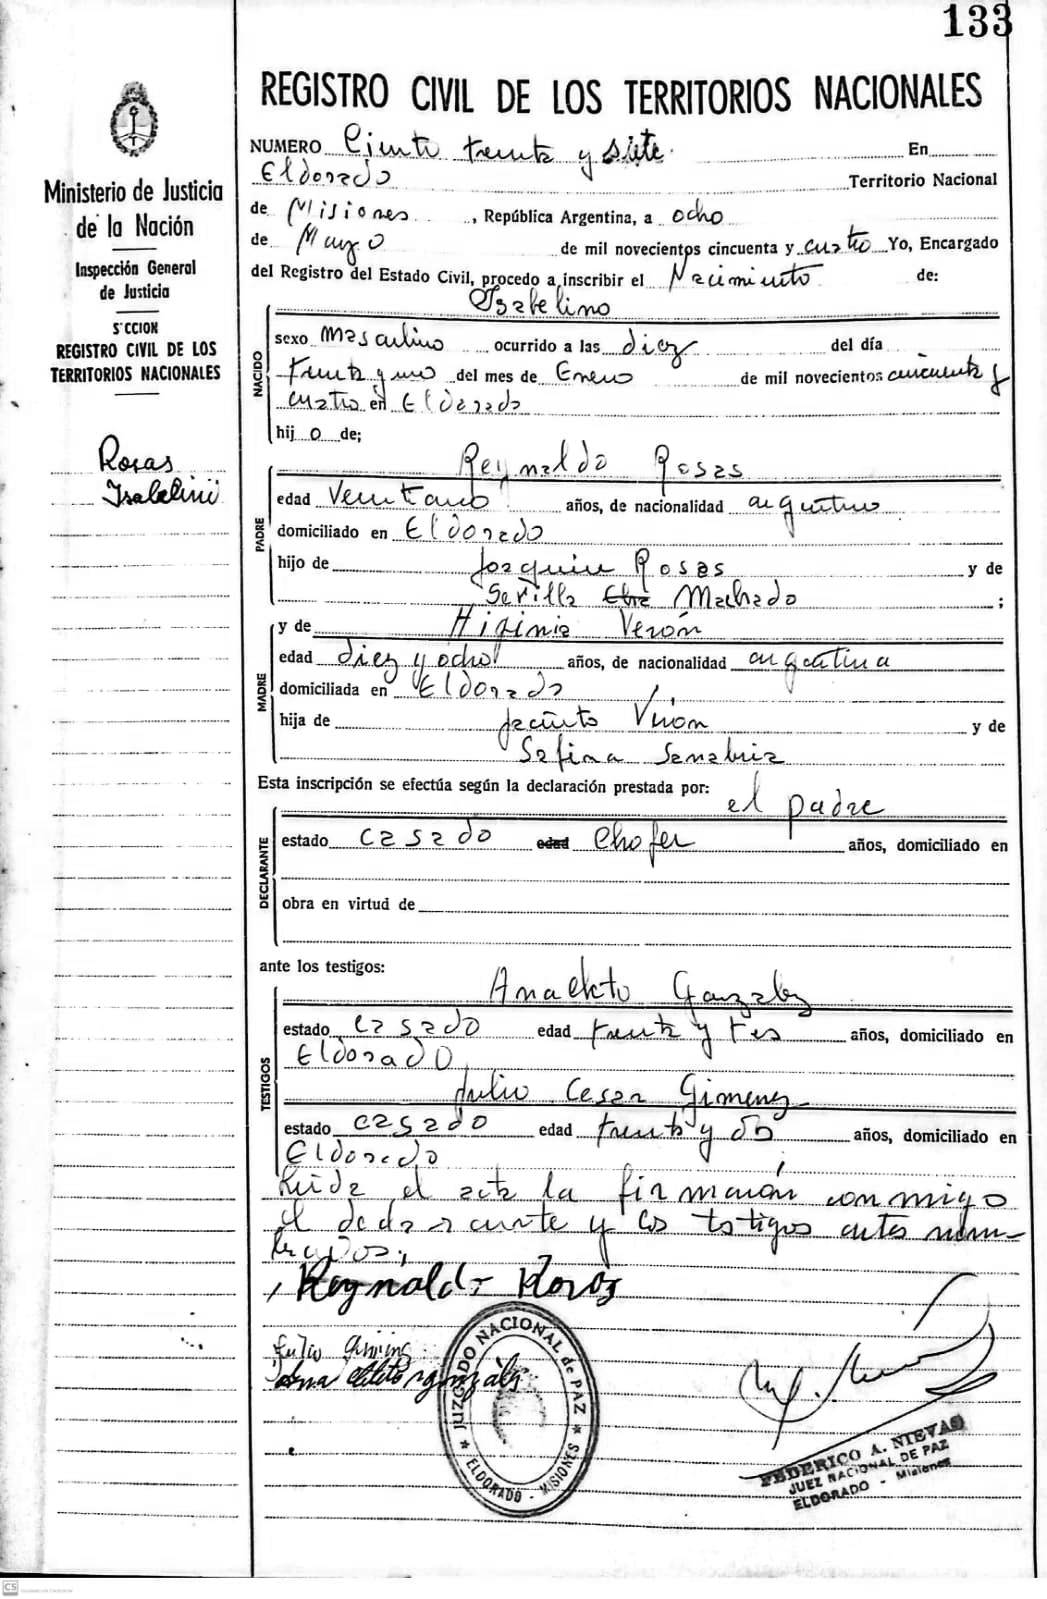 133
REGISTRO CIVIL DE LOS TERRITORIOS NACIONALES
Ministerio de Justicia
de la Nación
Inspección General
de Justicia
S'CCION
REGISTRO CIVIL DE LOS
TERRITORIOS NACIONALES
Rosas
Isabelino
NUMERO Ciento treinta y siete. En
Eldorado Territorio Nacional
de Misiones, República Argentina, a ocho
de Marzo de mil novecientos cincuenta y cuatro Yo, Encargado
del Registro del Estado Civil, procedo a inscribir el Nacimiento de:
Isabelino
NACIDO
sexo Masculino ocurrido a las diez del día
treinta y uno del mes de Enero de mil novecientos cincuenta y
cuatro en Eldorado
hij o de;
PADRE
Reynaldo Rosas
edad Veintiuno años, de nacionalidad argentino
domiciliado en Eldorado
hijo de Joaquin Rosas y de
Machado ;
MADRE
y de Higinia Verón
edad diez y ocho años, de nacionalidad argentina
domiciliada en Eldorado
hija de Jacinto Verón y de
Sefina Sanabria
Esta inscripción se efectúa según la declaración prestada por:
el padre
DECLARANTE
estado casado edad Chofer años, domiciliado en
obra en virtud de
ante los testigos:
TESTIGOS
Anacleto Gonzalez
estado casado edad treinta y tres años, domiciliado en
Eldorado
Julio Cesar Gimenez
estado casado edad treinta y dos años, domiciliado en
Eldorado
Leida el acta la firmarón conmigo
el declarante y los testigos antes nom-
brados;
Reynaldo Rosas
Julio Gimenez
Ana Cleto gonzales
JUZGADO NACIONAL de PAZ
ELDORADO - MISIONES
FEDERICO A. NIEVAS
JUEZ NACIONAL DE PAZ
ELDORADO - Misiones
CS